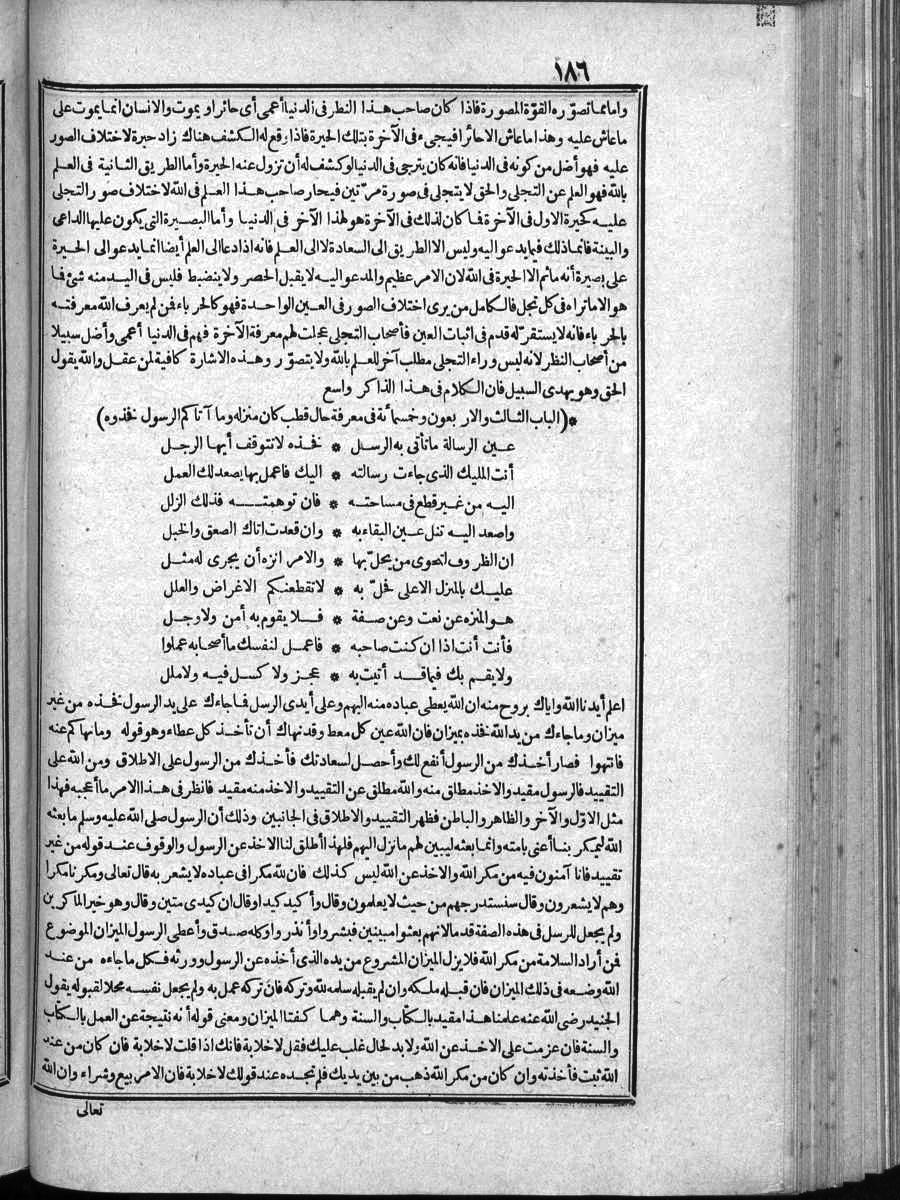 ١٨٦
واما مما تصوّره القوّة المصورة فاذا كان صاحب هذا النظر في الدنيا أعمى أى حائرا ويموت والانسان انما يموت على
ما عاش عليه وهذا ما عاش الاحائرا فيجىء فى الآخرة بتلك الحيرة فاذا وقع له الكشف هناك زاد حيرة لاختلاف الصور
عليه فهو أضل من كونه فى الدنيا فانه كان يترجى فى الدنيا لو كشف له أن تزول عنه الحيرة وأما الطريق الثانية فى العلم
بالله فهو العلم عن التجلى والحق لا يتجلى فى صورة مرّتين فيحار صاحب هذا العلم فى الله لاختلاف صور التجلى
عليه كحيرة الاول فى الآخرة فما كان لذلك فى الآخرة هو لهذا الآخر فى الدنيا وأما البصيرة التى يكون عليها الداعى
والبينة فانما ذلك فيما يدعو اليه وليس الا الطريق الى السعادة لا الى العلم فانه اذا دعا الى العلم أيضا انما يدعو الى الحيرة
على بصيرة أنه ماثم الا الحيرة فى الله لان الامر عظيم والمدعو اليه لا يقبل الحصر ولا ينضبط فليس فى اليد منه شئ فما
هو الا ما تراه فى كل تجل فالكامل من يرى اختلاف الصور فى العين الواحدة فهو كالحرباء فمن لم يعرف الله معرفته
بالحرباء فانه لا يستقرّ له قدم فى اثبات العين فأصحاب التجلى عجلت لهم معرفة الآخرة فهم فى الدنيا أعمى وأضل سبيلا
من أصحاب النظر لانه ليس وراء التجلى مطلب آخر للعلم بالله ولا يتصوّر وهذه الاشارة كافية لمن عقل والله يقول
الحق وهو يهدى السبيل فان الكلام فى هذا الذاكر واسع
*(الباب الثالث والاربعون وخمسمائة فى معرفة حال قطب كان منزله وما آتاكم الرسول فخذوه)
عين الرسالة ما تأتى به الرسل * فخذه لا تتوقف أيها الرجل
أنت المليك الذى جاءت رسالته * اليك فاعمل بها يصعد لك العمل
اليه من غير قطع فى مساحته * فان توهمته فذلك الزلل
واصعد اليه تنل عين البقاء به * وان قعدت اتاك الصعق والخبل
ان الظروف لتحوى من يحلّ بها * والامر انزه أن يجرى له مثل
عليك بالمنزل الاعلى فحلّ به * لا تقطعنكم الاغراض والعلل
هو المنزه عن نعت وعن صفة * فلا يقوم به أمن ولا وجل
فأنت أنت اذا ان كنت صاحبه * فاعمل لنفسك ما أصحابه عملوا
ولا يقم بك فيما قد أتيت به * عجز ولا كسل فيه ولا ملل
اعلم أيدنا الله واياك بروح منه ان الله يعطى عباده منه اليهم وعلى أيدى الرسل فما جاءك على يد الرسول فخذه من غير
ميزان وما جاءك من يد الله فخذه بميزان فان الله عين كل معط وقد نهاك أن تأخذ كل عطاء وهو قوله وما نهاكم عنه
فانتهوا فصار أخذك من الرسول أنفع لك وأحصل لسعادتك فأخذك من الرسول على الاطلاق ومن الله على
التقييد فالرسول مقيد والاخذ مطلق منه والله مطلق عن التقييد والاخذ منه مقيد فانظر فى هذا الامر ما أعجبه فهذا
مثل الاوّل والآخر والظاهر والباطن فظهر التقييد والاطلاق فى الجانبين وذلك أن الرسول صلى الله عليه وسلم ما بعثه
الله ليمكر بنا أعنى بامته وانما بعثه ليبين لهم ما نزل اليهم فلهذا أطلق لنا الاخذ عن الرسول والوقوف عند قوله من غير
تقييد فانا آمنون فيه من مكر الله والاخذ عن الله ليس كذلك فان لله مكرا فى عباده لا يشعر به قال تعالى ومكرنا مكرا
وهم لا يشعرون وقال سنستدرجهم من حيث لا يعلمون وقال وأكيد كيدا وقال ان كيدى متين وقال وهو خير الماكرين
ولم يجعل للرسل فى هذه الصفة قدما لانهم بعثوا مبينين فبشروا وأنذروا وكله صدق وأعطى الرسول الميزان الموضوع
فمن أراد السلامة من مكر الله فلا يزل الميزان المشروع من يده الذى أخذه عن الرسول وورثه فكل ما جاءه من عند
الله وضعه فى ذلك الميزان فان قبله ملكه وان لم يقبله سلمه لله وتركه فان تركه عمل به ولم يجعل نفسه محلا لقبوله يقول
الجنيد رضى الله عنه علمنا هذا مقيد بالكتاب والسنة وهما كفتا الميزان ومعنى قوله أنه نتيجة عن العمل بالكتاب
والسنة فان عزمت على الاخذ عن الله ولا بد لحال غلب عليك فقل لا خلابة فانك اذا قلت لا خلابة فان كان من عند
الله ثبت فأخذته وان كان من مكر الله ذهب من بين يديك فلم تجده عند قولك لا خلابة فان الامر بيع وشراء وان الله
تعالى